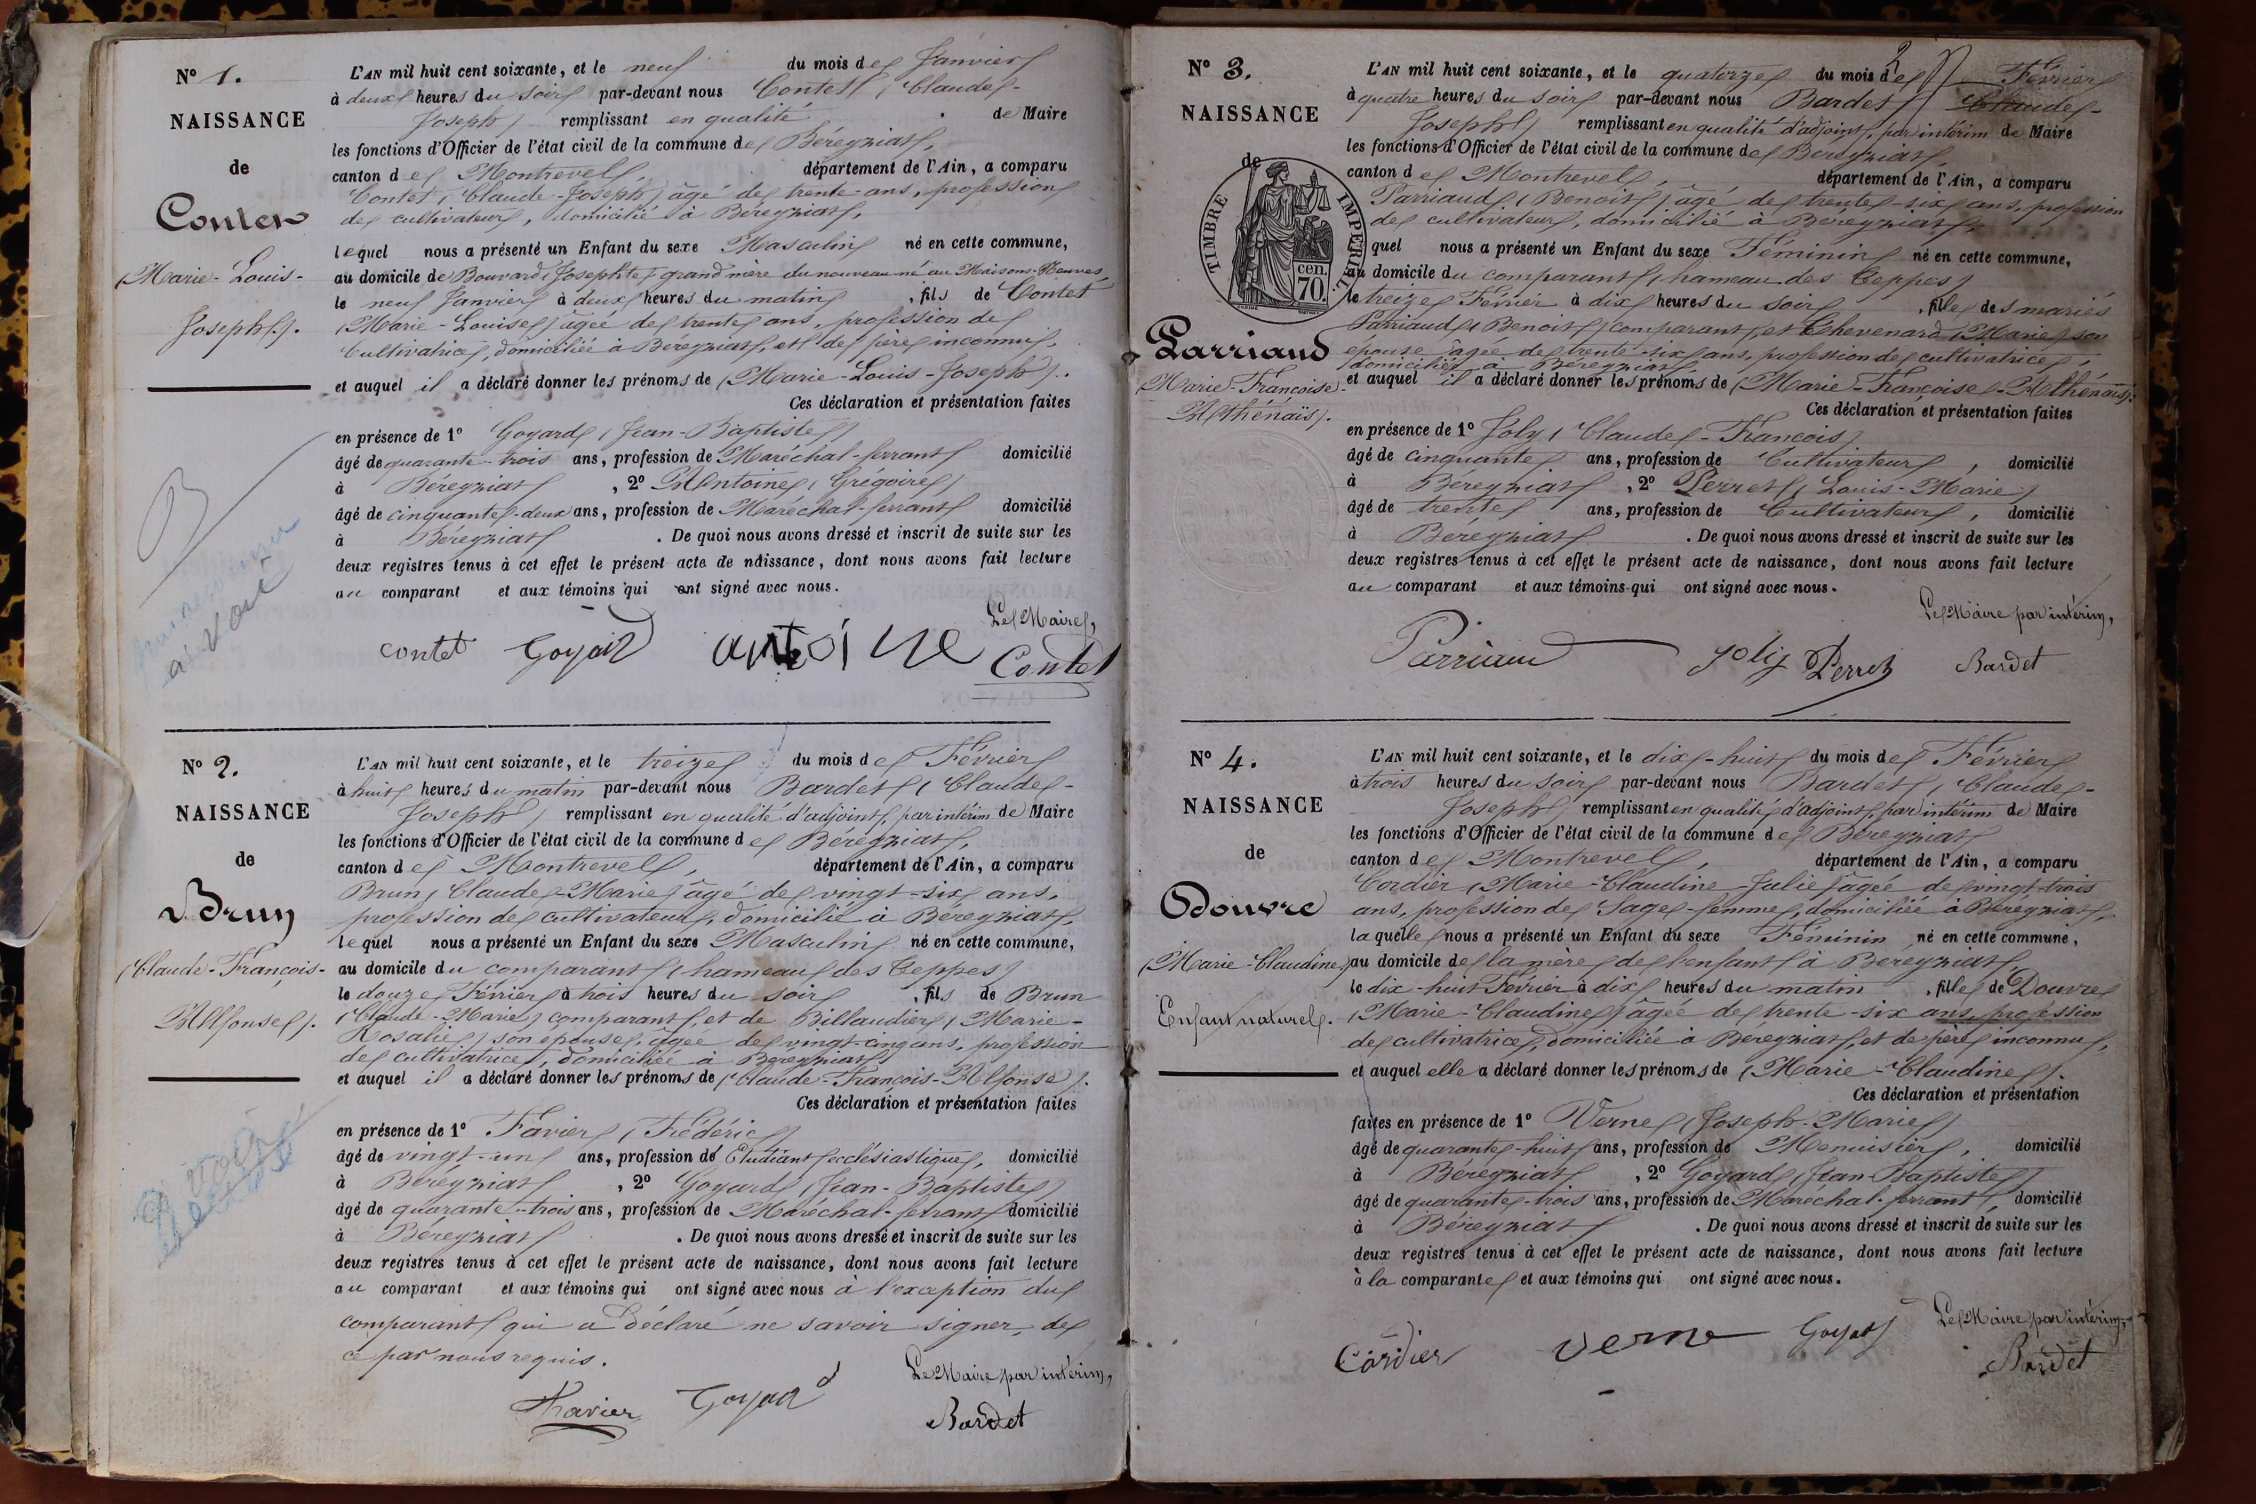 N° 1.
NAISSANCE
de
Contet
(Marie-Louis-
Joseph).
L'AN mil huit cent soixante, et le neuf du mois de Janvier
à deux heures du soir par-devant nous Contet (Claude-
Joseph) remplissant en qualité de Maire
les fonctions d'Officier de l'état civil de la commune de Béréyziat,
canton de Montrevel, département de l'Ain, a comparu
Contet (Claude-Joseph) âgé de trente ans, profession
de cultivateur, domicilié à Béréyziat,
lequel nous a présenté un Enfant du sexe Masculin né en cette commune,
au domicile de Bouvard (Josephte) grand'mère du nouveau-né au Maisons-Neuves,
le neuf Janvier à deux heures du matin, fils de Contet
(Marie-Louise) âgée de trente ans, profession de
Cultivatrice, domiciliée à Béréyziat, et de père inconnu,
et auquel il a déclaré donner les prénoms de (Marie-Louis-Joseph).
Ces déclaration et présentation faites
en présence de 1° Goyard (Jean-Baptiste)
âgé de quarante-trois ans, profession de Maréchal-ferrant domicilié
à Béréyziat, 2° Antoine (Grégoire)
âgé de cinquante-deux ans, profession de Maréchal-ferrant domicilié
à Béréyziat. De quoi nous avons dressé et inscrit de suite sur les
deux registres tenus à cet effet le présent acte de naissance, dont nous avons fait lecture
au comparant et aux témoins qui ont signé avec nous.
Le Maire,
contet Goyard antoine Contet
N° 2.
NAISSANCE
de
Brun
(Claude-François-
Alfonse).
L'AN mil huit cent soixante, et le treize du mois de Février
à huit heures du matin par-devant nous Bardet (Claude-
Joseph) remplissant en qualité d'adjoint, par intérim de Maire
les fonctions d'Officier de l'état civil de la commune de Béréyziat,
canton de Montrevel, département de l'Ain, a comparu
Brun (Claude-Marie) âgé de vingt-six ans,
profession de cultivateur, domicilié à Béréyziat,
lequel nous a présenté un Enfant du sexe Masculin né en cette commune,
au domicile du comparant (hameau des Teppes)
le douze Février à trois heures du soir, fils de Brun
(Claude-Marie) comparant, et de Billaudier (Marie-
Rosalie) son épouse, âgée de vingt-cinq ans, profession
de cultivatrice, domiciliée à Béréyziat,
et auquel il a déclaré donner les prénoms de (Claude-François-Alfonse).
Ces déclaration et présentation faites
en présence de 1° Favier (Frédéric)
âgé de vingt-un ans, profession de Etudiant ecclésiastique, domicilié
à Béréyziat, 2° Goyard (Jean-Baptiste)
âgé de quarante-trois ans, profession de Maréchal-ferrant domicilié
à Béréyziat. De quoi nous avons dressé et inscrit de suite sur les
deux registres tenus à cet effet le présent acte de naissance, dont nous avons fait lecture
au comparant et aux témoins qui ont signé avec nous à l'exception du
comparant qui a déclaré ne savoir signer, de
ce par nous requis.
Le Maire par intérim,
Favier Goyard Bardet
N° 3.
NAISSANCE
de
TIMBRE IMPERIAL
70 cen.
Parriaud
(Marie-Françoise-
Athénaïs).
L'AN mil huit cent soixante, et le quatorze du mois de Février
à quatre heures du soir par-devant nous Bardet (Claude-
Joseph) remplissant en qualité d'adjoint, par intérim de Maire
les fonctions d'Officier de l'état civil de la commune de Béréyziat,
canton de Montrevel, département de l'Ain, a comparu
Parriaud (Benoit) âgé de trente-six ans, profession
de cultivateur, domicilié à Béréyziat,
quel nous a présenté un Enfant du sexe Féminin né en cette commune,
au domicile du comparant (hameau des Teppes)
le treize Février à dix heures du soir, fille des mariés
Parriaud (Benoit) comparant, et Chevenard (Marie) son
épouse âgée de trente-six ans, profession de cultivatrice,
domiciliée à Béréyziat,
et auquel il a déclaré donner les prénoms de (Marie-Françoise-Athénaïs).
Ces déclaration et présentation faites
en présence de 1° Joly (Claude-François)
âgé de cinquante ans, profession de Cultivateur, domicilié
à Béréyziat, 2° Perret (Louis-Marie)
âgé de trente ans, profession de Cultivateur, domicilié
à Béréyziat. De quoi nous avons dressé et inscrit de suite sur les
deux registres tenus à cet effet le présent acte de naissance, dont nous avons fait lecture
au comparant et aux témoins qui ont signé avec nous.
Le Maire par intérim,
Parriaud Joly Perret Bardet
N° 4.
NAISSANCE
de
Douvre
(Marie-Claudine)
Enfant naturel.
L'AN mil huit cent soixante, et le dix-huit du mois de Février
à trois heures du soir par-devant nous Bardet (Claude-
Joseph) remplissant en qualité d'adjoint, par intérim de Maire
les fonctions d'Officier de l'état civil de la commune de Béréyziat
canton de Montrevel, département de l'Ain, a comparu
Cordier (Marie-Claudine-Julie) âgée de vingt-trois
ans, profession de Sage-femme, domiciliée à Béréyziat,
laquelle nous a présenté un Enfant du sexe Féminin né en cette commune,
au domicile de la mère de l'enfant à Béréyziat,
le dix-huit Février à dix heures du matin, fille de Douvre
(Marie-Claudine) âgée de trente-six ans, profession
de cultivatrice, domiciliée à Béréyziat, et de père inconnu,
et auquel elle a déclaré donner les prénoms de (Marie-Claudine).
Ces déclaration et présentation
faites en présence de 1° Verne (Joseph-Marie)
âgé de quarante-huit ans, profession de Menuisier, domicilié
à Béréyziat, 2° Goyard (Jean-Baptiste)
âgé de quarante-trois ans, profession de Maréchal-ferrant, domicilié
à Béréyziat. De quoi nous avons dressé et inscrit de suite sur les
deux registres tenus à cet effet le présent acte de naissance, dont nous avons fait lecture
à la comparante et aux témoins qui ont signé avec nous.
Le Maire par intérim,
Cordier Verne Goyard Bardet